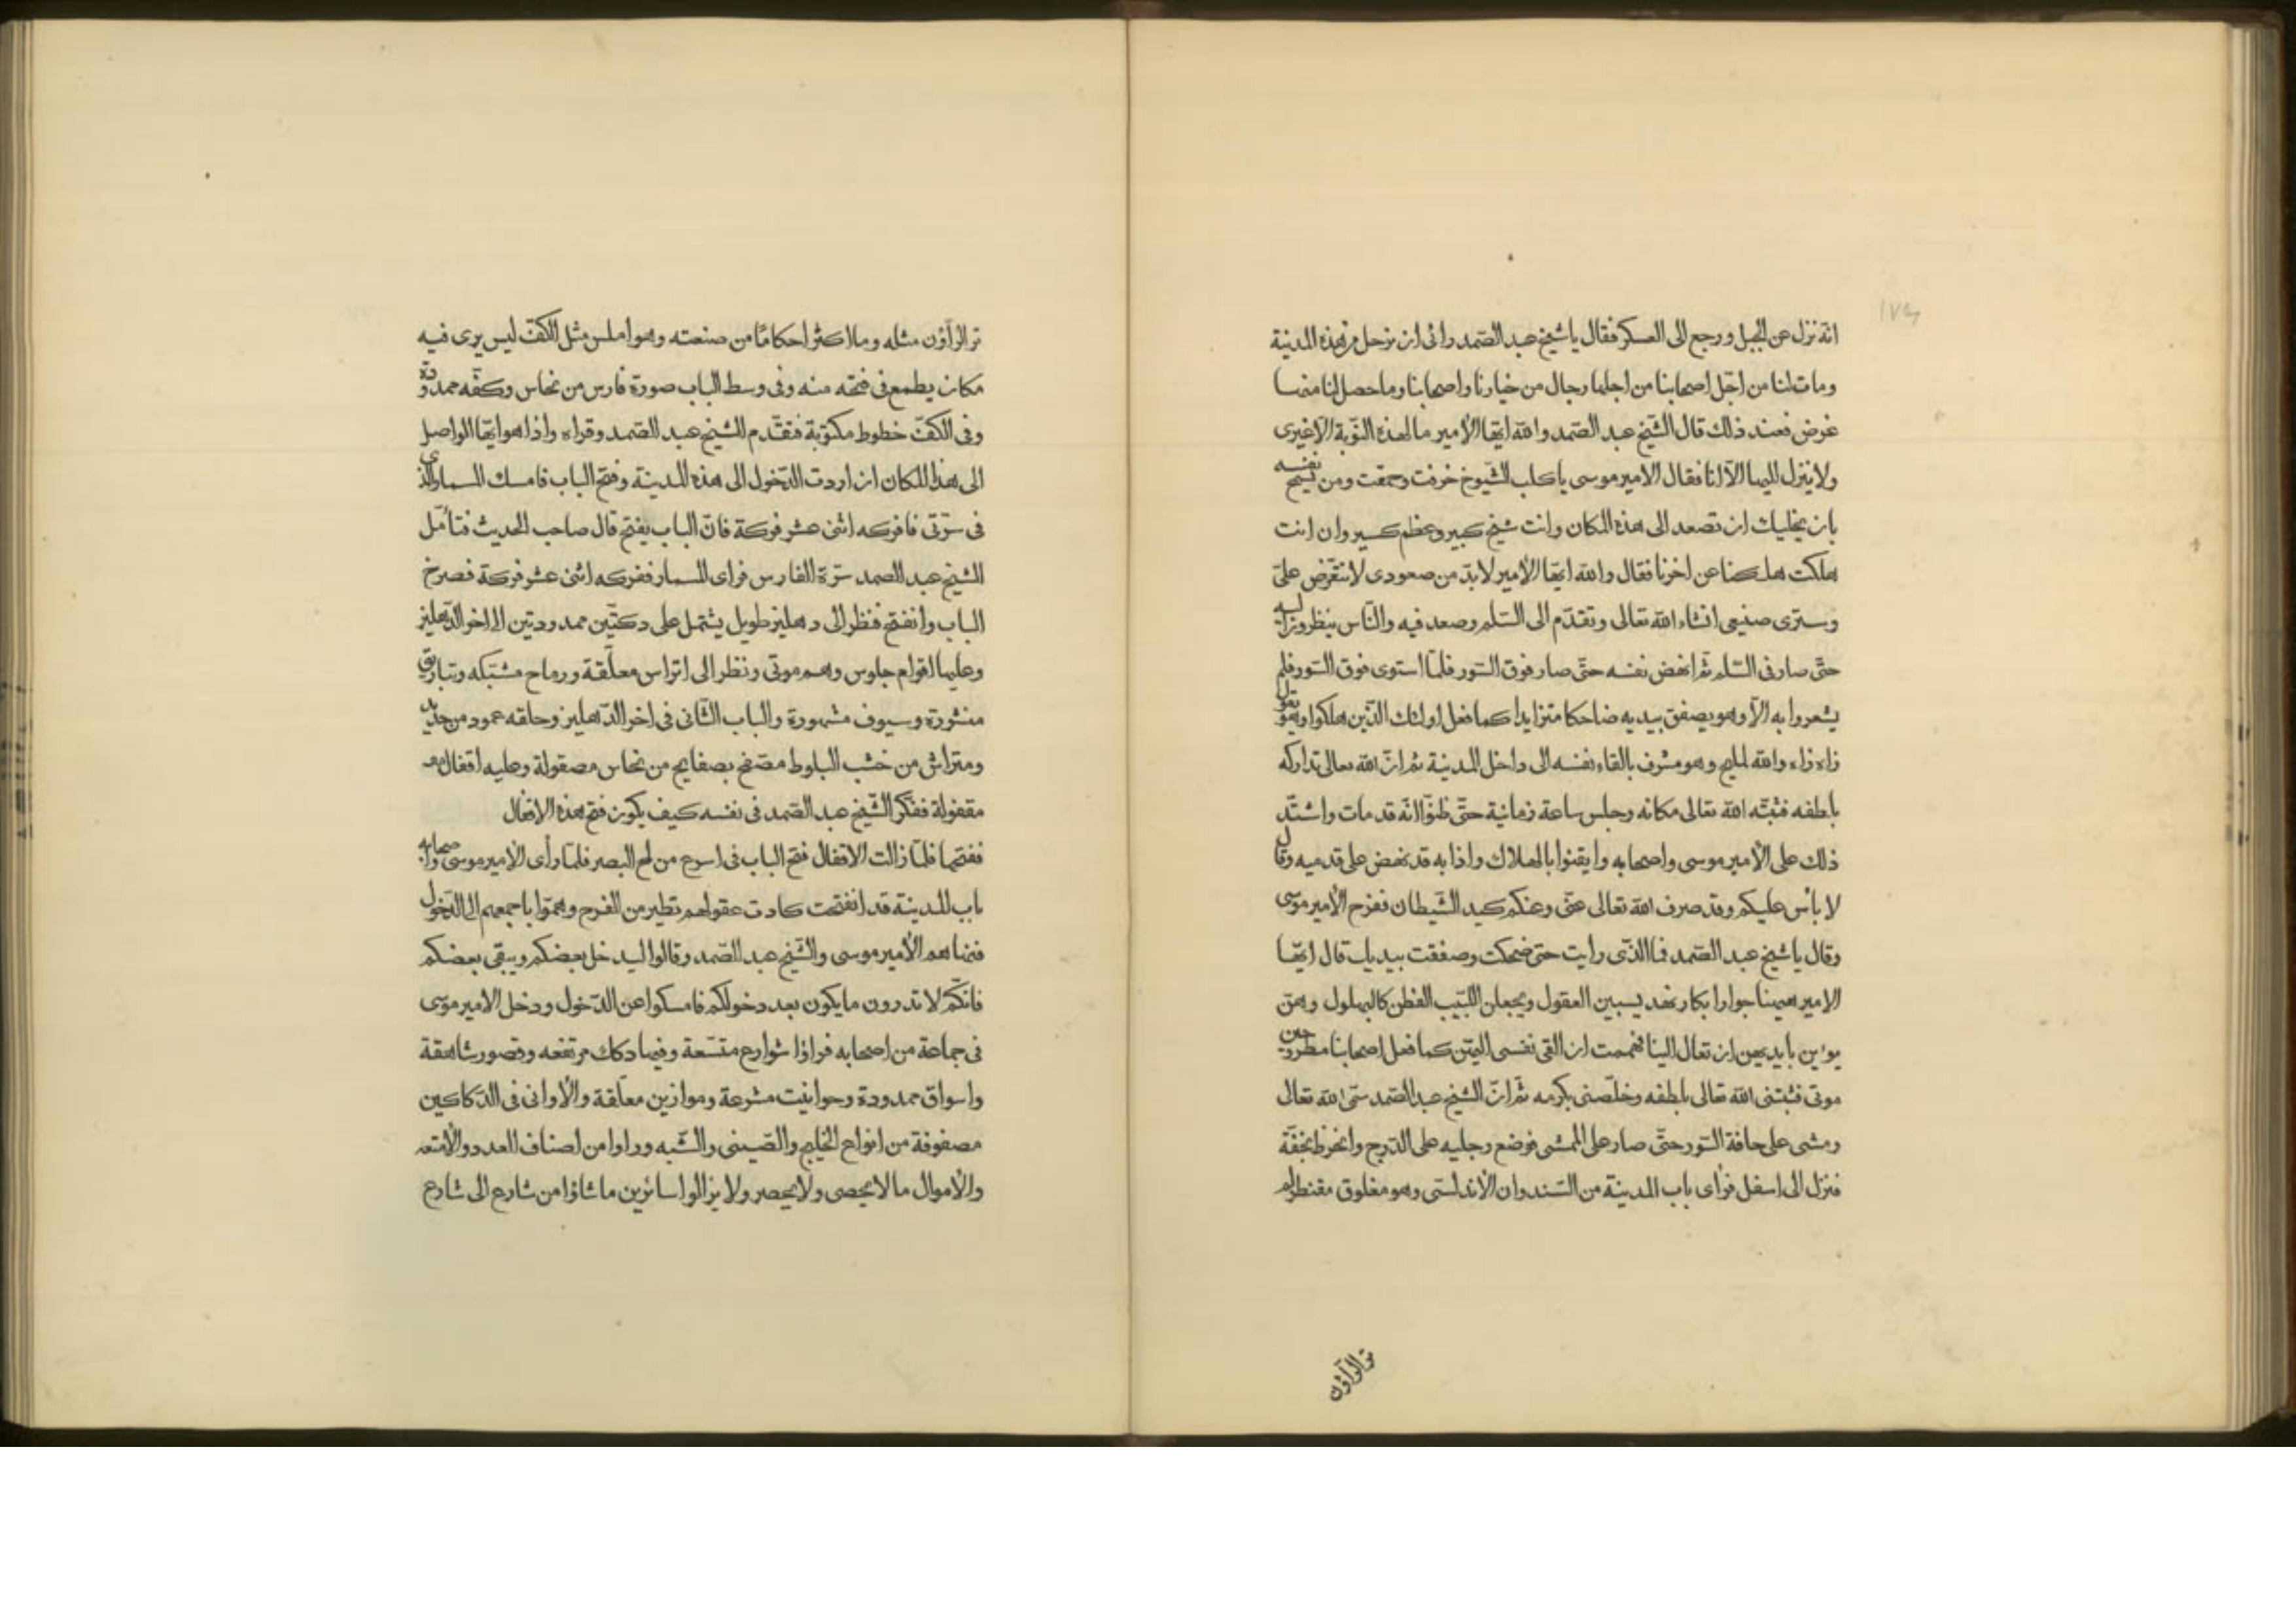 ١٧٤
انه نزل عن الجبل ورجع الى العسكر فقال يا شيخ عبد الصّمد رائى ان نرحل من هذه المدينة
ومات لنا من اجّل اصحابنا من اجلها رجال من خيارنا واصحابنا وما حصل لنا منها
غرض فعند ذلك قال الشّيخ عبد الصّمد والله ايّها الأمير ما لهذه النّوبة الّا غيرى
ولا ينزل اليها الّا انا فقال الامير موسى يا كلب الشّيوخ خرفت وحمقت ومن نفسه
بان يخليك ان تصعد الى هذه المكان وانت شيخ كبير وعظم كسير وان انت
هلكت هلكنا عن اخرنا فقال والله ايّها الأمير لا بدّ من صعودى لا تتعرّض علىّ
وسترى صنيعى انشاء الله تعالى وتقدّم الى السّلم وصعد فيه والنّاس ينظرون اليه
حتّى صار فى السّلم ثمّ انهض نفسه حتّى صار فوق السّور فلمّا استوى فوق السّور فلم
يشعروا به الّا وهو يصفق بيديه ضاحكا متزايدا كما فعل اولئك الّذين هلكوا وهو يقول
زاه زاه والله مليح وهو مشرف بالقاء نفسه الى داخل المدينة ثم ان الله تعالى تداركه
بلطفه فثبّته الله تعالى مكانه وجلس ساعة زمانية حتّى ظنّوا انّه قد مات واشتّد
ذلك على الأمير موسى واصحابه وايقنوا بالهلاك واذا به قد نهض على قدميه وقال
لا بأس عليكم وقد صرف الله تعالى عنّى وعنكم كيد الشّيطان ففرح الأمير موسى
وقال يا شيخ عبد الصّمد فما الذّى رايت حتى ضحكت وصفقت بيديك قال ايّها
الامير هيهنا جوارا بكار نهد يسبين العقول ويجعلن اللّبيب الفطن كالبهلول وهن
يوٴين بايديهن ان تعال الينا فهممت ان القى نفسى اليهن كما فعل اصحابنا مطروحين
موتى فثبّتنى الله تعالى بلطفه وخلّصنى بكرمه ثمّ انّ الشيخ عبد الصّمد سمّى الله تعالى
ومشى على حافة السّور حتّى صار على الممشى فوضع رجليه على الدّرج وانخرط بخفّة
فنزل الى اسفل فرأى باب المدينة من السّندوان الأندلسّى وهو مغلوق مقنطر لم
تر الرّاؤن
تر الرّاؤن مثله وما اكثر احكامًا من صنعته وهو املس مثل الكفّ ليس يرى فيه
مكان يطمع فى فتحه منه وفى وسط الباب صورة فارس من نحاس وكفّه ممدودة
وفى الكفّ خطوط مكتوبة فتقدّم الشيخ عبد الصّمد وقراه واذا هو ايّها الواصل
الى هذا المكان ان اردت الدّخول الى هذه المدينة وفتح الباب فامسك المسمار الذى
فى سرّتى فافركه اثنى عشر فركة فانّ الباب يفتح قال صاحب الحديث فتأمّل
الشيخ عبد الصمد سرّة الفارس فراى المسمار ففركه اثنى عشر فركة فصرخ
الباب وانفتح فنظر الى دهليز طويل يشتمل على دكّتين ممدودتين الى اخر الدّهليز
وعليها اقوام جلوس وهم موتى ونظر الى اتراس معلّقة ورماح مشتبكه
منشورة وسيوف مشهورة والباب الثّانى فى اخر الدّهليز وحلقه عمود من حديد
ومتراس من خشب البلوط مصفّح بصفايح من نحاس مصقولة وعليه اقفال
مقفولة ففكّر الشّيخ عبد الصّمد فى نفسه كيف يكون فتح هذه الاقفال
ففتحها فلمّا زالت الاقفال فتح الباب فى اسرع من لمح البصر فلمّا رأى الامير موسى واصحابه
باب المدينة قد انفتحت كادت عقولهم تطير من الفرح وهمّوا باجمعهم الى الدّخول
فنهاهم الأمير موسى والشّيخ عبد الصّمد وقالوا ليدخل بعضكم ويبقى بعضكم
فانكّم لا تدرون ما يكون بعد دخولكم فامسكوا عن الدّخول ودخل الامير موسى
فى جماعة من اصحابه فراوا شوارع متسّعة وفيها دكاك مرتفعه وقصور شاهقة
واسواق ممدودة وحوانيت مشرعة وموازين معلّقة والأوانى فى الدّكاكين
مصفوفة من انواع الخليج والصّينى والشّبه وراوا من اصناف العدد والأمتعه
والأموال ما لا يحصى ولا يحصر ولا يزالوا سائرين ما شاؤا من شارع الى شارع